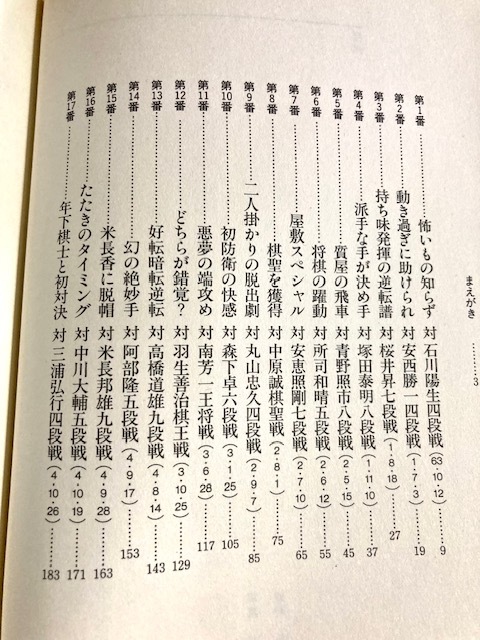 まえがき………3
第1番………怖いもの知らず 対 石川陽生四段戦(63・10・12)………9
第2番………動き過ぎに助けられ 対 安西勝一四段戦(1・7・3)………19
第3番………持ち味発揮の逆転譜 対 桜井昇七段戦(1・8・18)………27
第4番………派手な手が決め手 対 塚田泰明八段戦(1・11・10)………37
第5番………質屋の飛車 対 青野照市八段戦(2・5・15)………45
第6番………将棋の躍動 対 所司和晴五段戦(2・6・12)………55
第7番………屋敷スペシャル 対 安恵照剛七段戦(2・7・10)………65
第8番………棋聖を獲得 対 中原誠棋聖戦(2・8・1)………75
第9番………二人掛かりの脱出劇 対 丸山忠久四段戦(2・9・7)………85
第10番………初防衛の快感 対 森下卓六段戦(3・1・25)………105
第11番………悪夢の端攻め 対 南芳一王将戦(3・6・28)………117
第12番………どちらが錯覚? 対 羽生善治棋王戦(3・10・25)………129
第13番………好転暗転逆転 対 高橋道雄九段戦(4・8・14)………143
第14番………幻の絶妙手 対 阿部隆五段戦(4・9・17)………153
第15番………米長香に脱帽 対 米長邦雄九段戦(4・9・28)………163
第16番………たたきのタイミング 対 中川大輔五段戦(4・10・19)………171
第17番………年下棋士と初対決 対 三浦弘行四段戦(4・10・26)………183